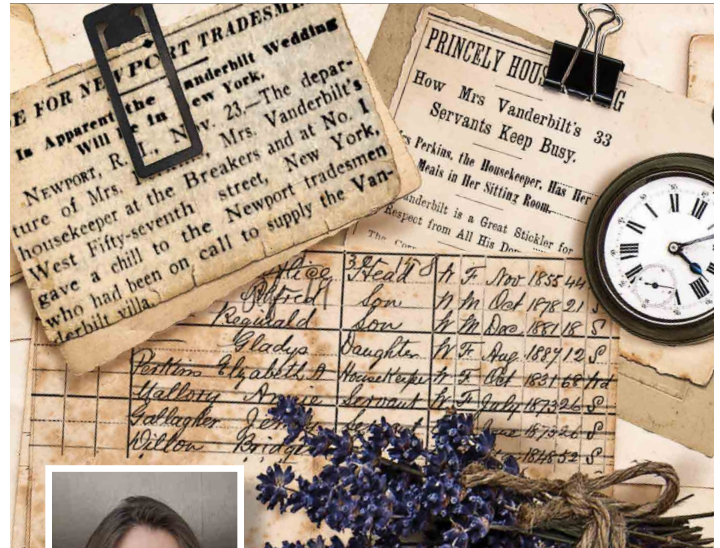 E FOR NEWPORT TRADESME
In Apparent the Vanderbilt Wedding
Will Be in New York.
NEWPORT, R. I., Nov. 23,—The depar-
ture of Mrs. Mrs. Vanderbilt's
housekeeper at the Breakers and at No. 1
West Fifty-seventh street, New York,
gave a chill to the Newport tradesmen
who had been on call to supply the Van-
derbilt villa.
PRINCELY HOUS G
How Mrs Vanderbilt's 33
Servants Keep Busy.
s Perkins, the Housekeeper, Has Her
Meals in Her Sitting Room.
anderbilt is a Great Stickler for
Respect from All His Do
The Cor
Alice Head W F Nov 1855 44
Alfred Son W M Oct 1878 21 S
Reginald Son W M Dec 1881 18 S
Gladys Daughter W F Aug 1887 12 S
Perkins Elizabeth A HouseKeeper W F Oct 1831 68 Wd
Mallory Annie Servant W F July 1873 26 S
Gallagher Jen Servant 1873 26 S
Dillon Bridg 1848 52 S